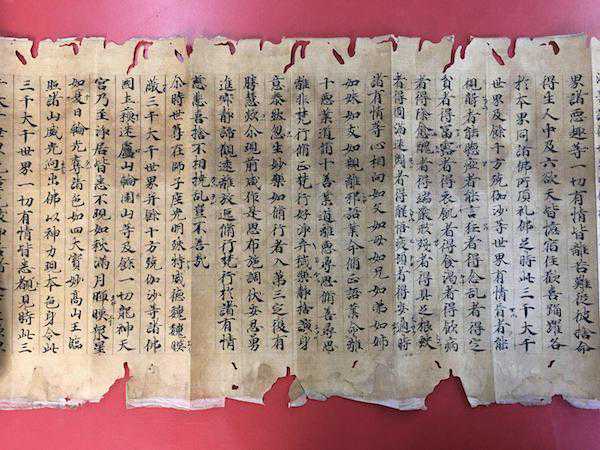 界諸惡趣等一切有情皆離苦難從彼捨命
得生人中及六欲天皆憶宿住歡喜踊躍各
於本界同詣佛所頂礼佛足時此三千大千
世界及餘十方殑伽沙等世界有情盲者能
視聾者能聽瘂者能言狂者得念亂者得定
貧者得富露者得衣飢者得食渴者得飲病
者得除愈醜者得端嚴殘者得具足根缺
者得圓滿迷悶者得醒悟疲頓者得安適時
諸有情等心相向如父如母如兄如弟如姉
如妹如友如親離邪語業命修正語業命離
十惡業道修十善業道離惡尋思修善尋思
離非梵行修正梵行好淨弃穢樂靜捨諠身
意泰然忽生妙樂如修行者入第三定復有
勝慧欻尒現前咸作是思布施調伏安忍勇
進寂靜諦觀遠離放逸修行梵行於諸有情
慈悲喜捨不相撓亂豈不善哉
尒時世尊在師子座光明殊特威德巍巍暎
蔽三千大千世界并餘十方殑伽沙等諸佛
國土蘇迷盧山輪圍山等及餘一切龍神天
宮乃至淨居皆悉不現如秋滿月暉暎衆星
如夏日輪光奪諸色如四大寶妙高山王臨
照諸山威光迥出佛以神力現本色身令此
三千大千世界一切有情皆悉覩見時此三